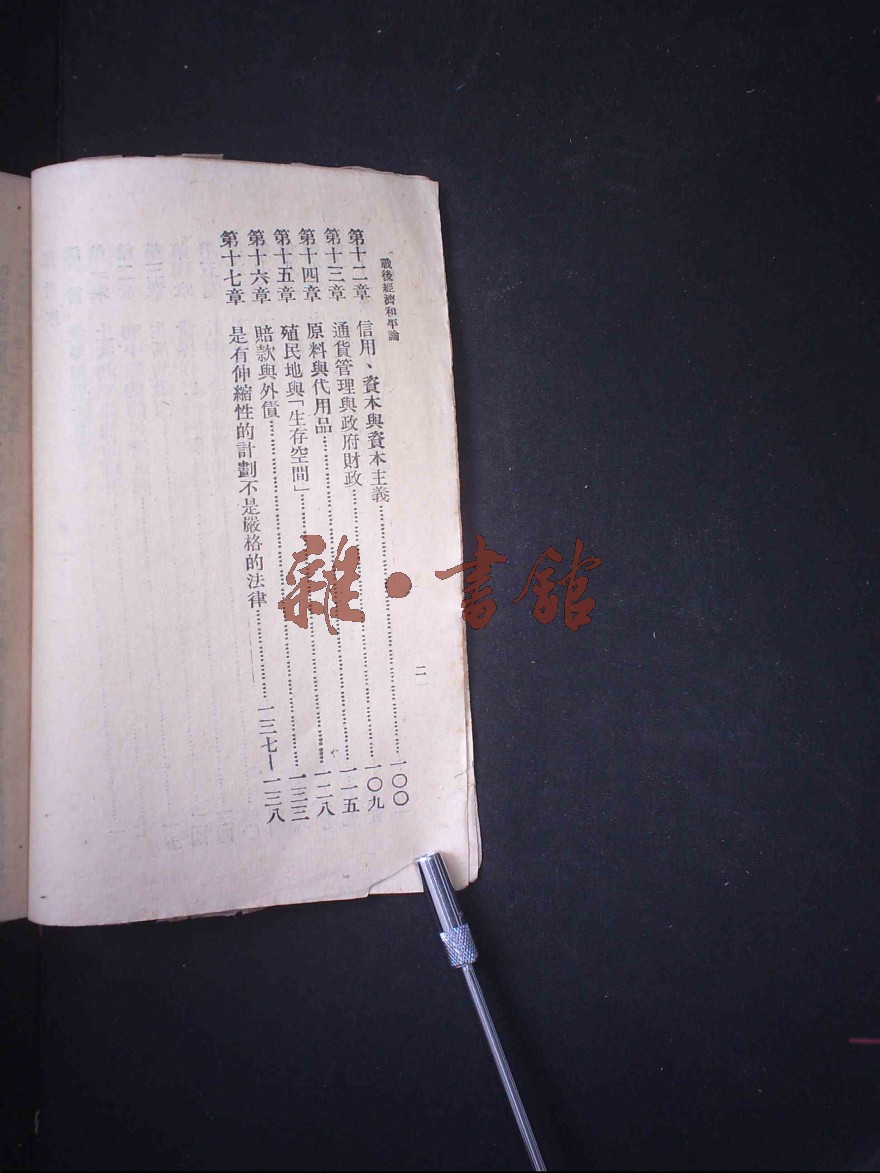 戰後經濟和平論
二
第十二章 信用、資本與資本主義……一〇〇
第十三章 通貨管理與政府財政……一〇九
第十四章 原料與代用品……一一五
第十五章 殖民地與「生存空間」……一二八
第十六章 賠款與外債……一三三
第十七章 是有伸縮性的計劃不是嚴格的法律……一三七—一三八
雜·書館